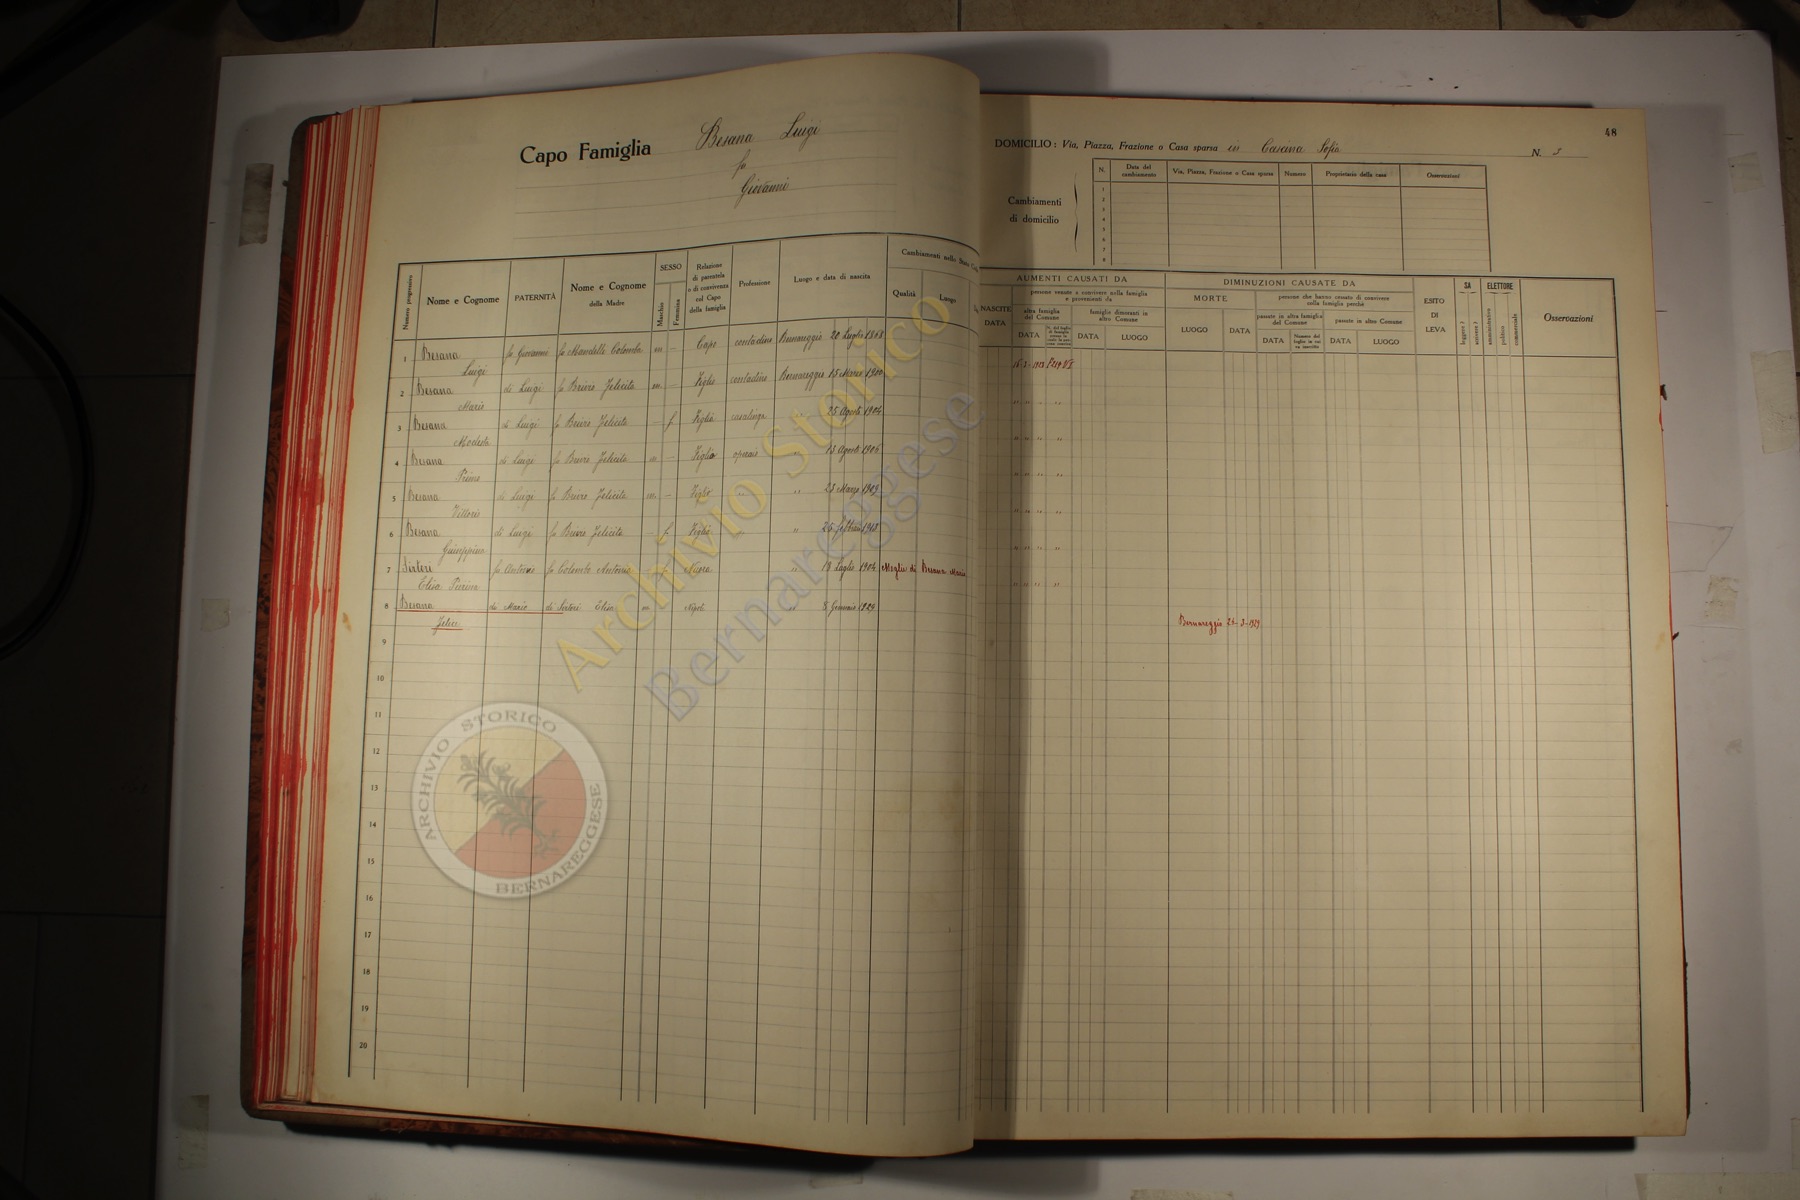 48
Capo Famiglia Besana Luigi
fu
Giovanni
DOMICILIO: Via, Piazza, Frazione o Casa sparsa in Cascina Sofia N. 3
Cambiamenti di domicilio
N. Data del cambiamento Via, Piazza, Frazione o Casa sparsa Numero Proprietario della casa Osservazioni
1
2
3
4
5
6
7
8
Numero progressivo Nome e Cognome PATERNITÀ Nome e Cognome della Madre SESSO Maschio Femmina Relazione di parentela o di convivenza col Capo della famiglia Professione Luogo e data di nascita Cambiamenti nello Stato Qualità Luogo
NASCITE DATA AUMENTI CAUSATI DA persone venute a convivere nella famiglia e provenienti da altra famiglia del Comune DATA famiglie dimoranti in altro Comune DATA LUOGO
DIMINUZIONI CAUSATE DA MORTE LUOGO DATA persone che hanno cessato di convivere colla famiglia perchè passate in altra famiglia del Comune DATA passate in altro Comune DATA LUOGO
ESITO DI LEVA SA leggere? scrivere? ELETTORE amministrativo politico commerciale Osservazioni
1 Besana Luigi fu Giovanni fu Mandelli Colomba m - Capo contadino Bernareggio 20 Luglio
2 Besana Mario di Luigi fu Brivio Felicita m - Figlio contadino Bernareggio 15 Marzo 1900
3 Besana Modesta di Luigi fu Brivio Felicita - f Figlia casalinga 25 Agosto 1904
4 Besana Primo di Luigi fu Brivio Felicita m - Figlio operaio " 13 Agosto 1906
5 Besana Vittorio di Luigi fu Brivio Felicita m - Figlio " " 23 Marzo 1909
6 Besana Giuseppina di Luigi fu Brivio Felicita - f Figlia " "
7 Sirtori Elisa Pierina fu Antonio fu Colombo Antonia - f Nuora " 18 Luglio 1904 Moglie di Besana Mario
8 Besana Felice di Mario di Sirtori Elisa m Nipote " 8 Gennaio 1929 Bernareggio 1929
9
10
11
12
13
14
15
16
17
18
19
20
Archivio Storico
Bernareggese
ARCHIVIO STORICO
BERNAREGGESE